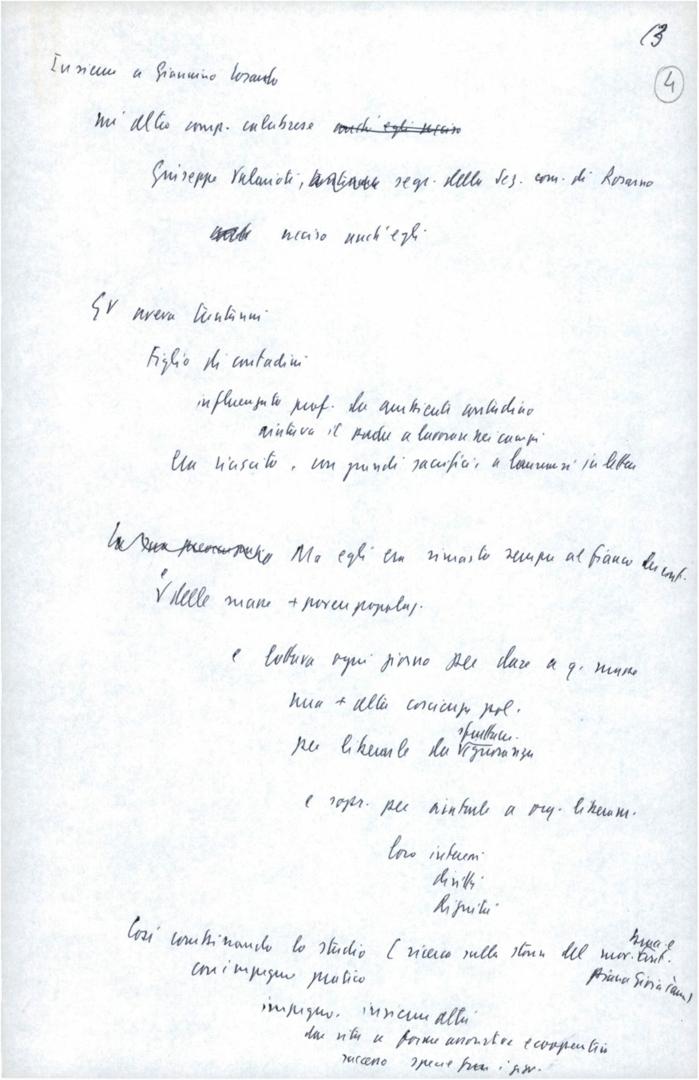 13
4
Insieme a Giannino Losardo
un altro comp. calabrese anch'egli ucciso
Giuseppe Valarioti, segr. della Sez. com. di Rosarno
ucciso anch'egli
GV aveva trent'anni
Figlio di contadini
influenzato prof. da ambiente contadino
aiutava il padre a lavorare nei campi
Era riuscito, con grandi sacrifici, a laurearsi in lettere
La sua preoccupazio Ma egli era rimasto sempre al fianco dei cont.
e delle masse + povere popolaz.
e lottava ogni giorno per dare a q. masse
una + alta coscienza pol.
per liberarle da sfruttam. ignoranza
e sopr. per aiutarle a org. liberam.
loro interessi
diritti
dignità
Così combinando lo studio (ricerca sulla storia del mov. cont.
Piana Gioia Tauro)
con impegno pratico
impegno. insieme altri
dar vita a forme associative e cooperative
successo specie fra i giov.